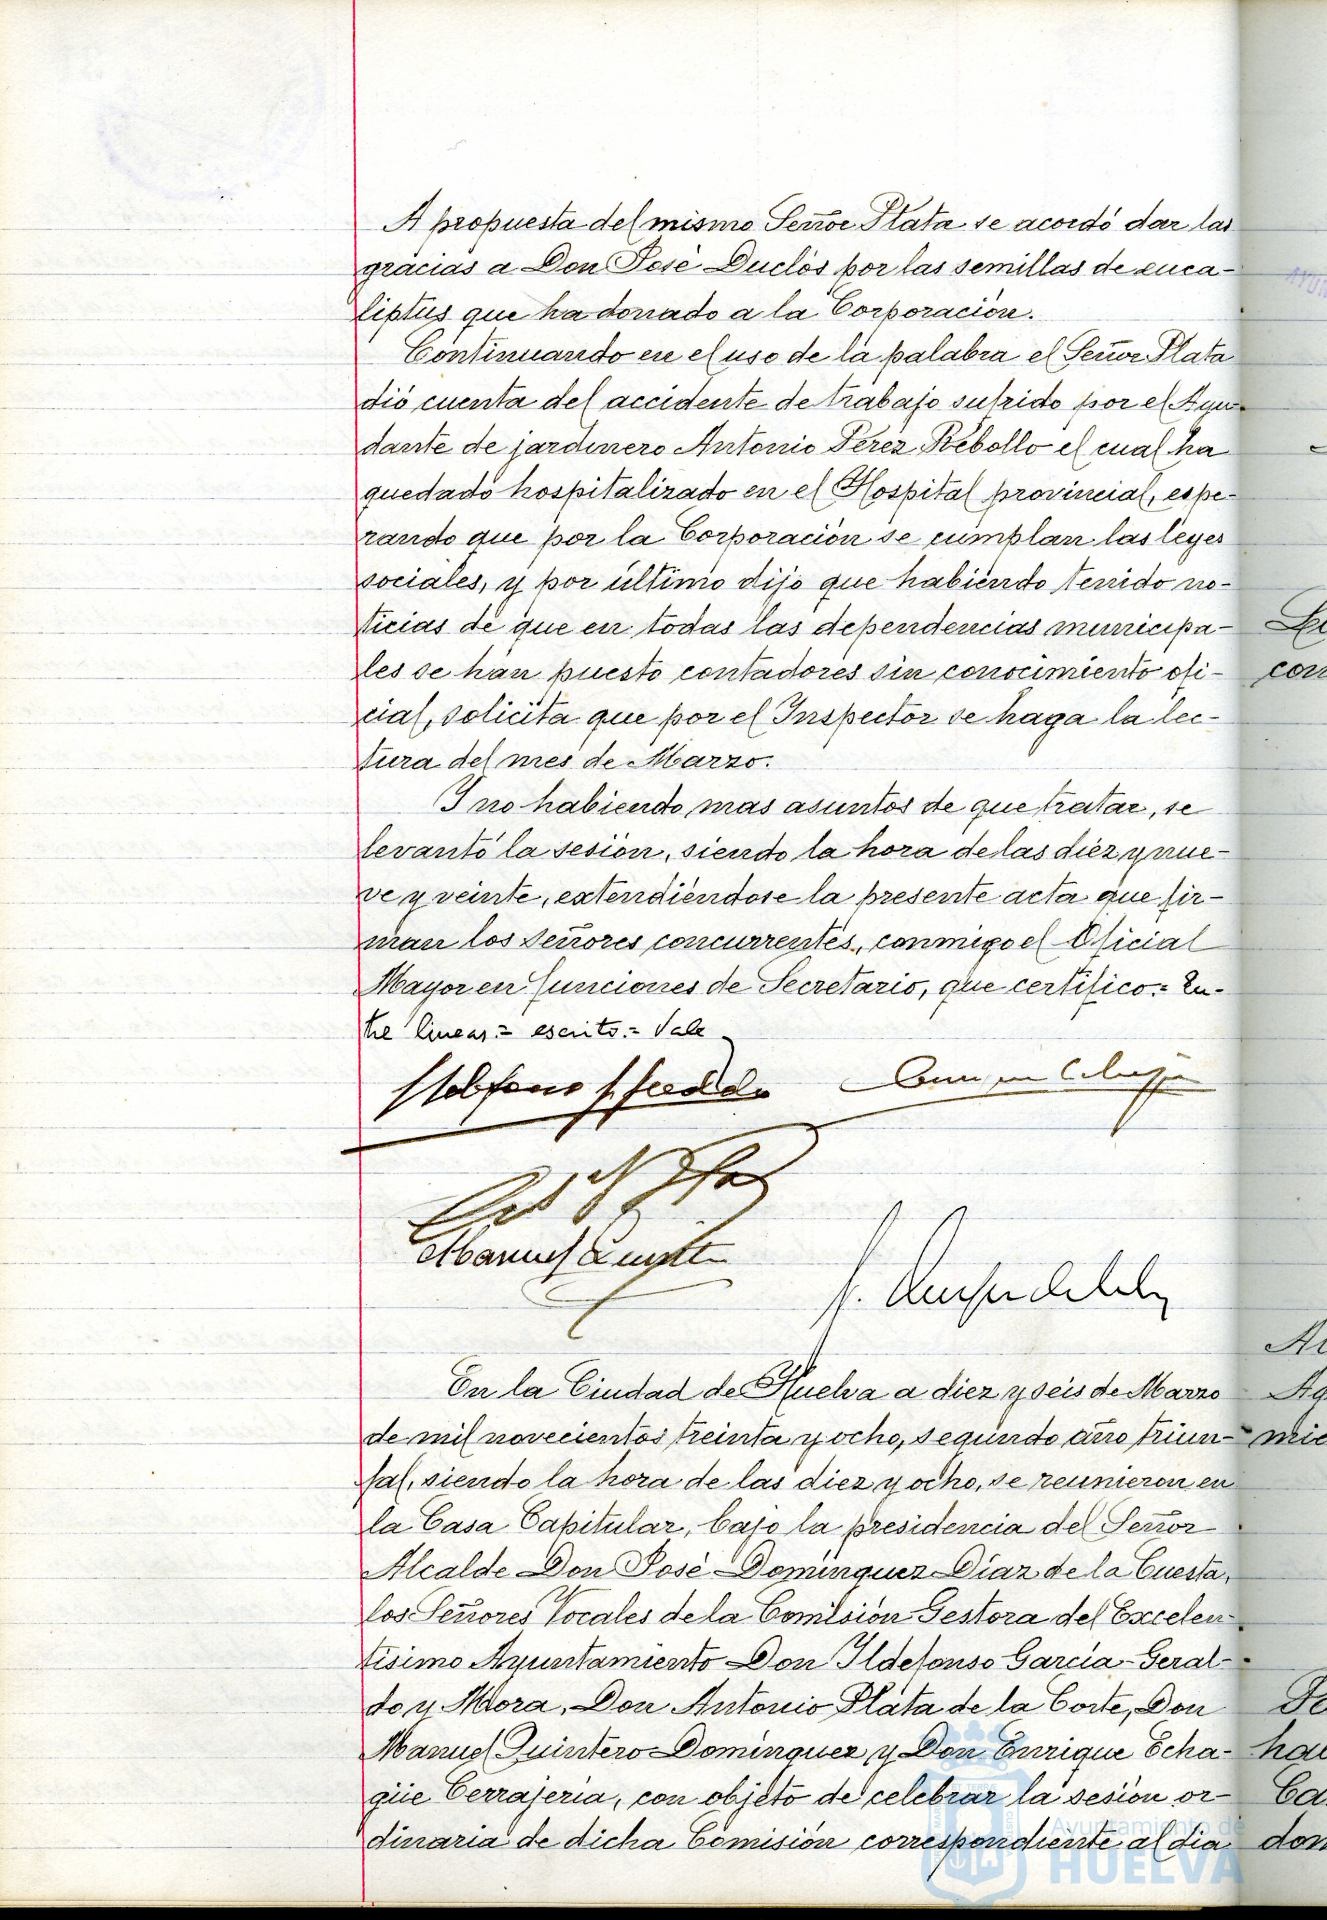 A propuesta del mismo Señor Plata se acordó dar las
gracias a Don José Duclós por las semillas de euca-
liptus que ha donado a la Corporación.
Continuando en el uso de la palabra el Señor Plata
dió cuenta del accidente de trabajo sufrido por el Ayu-
dante de jardinero Antonio Pérez Rebollo el cual ha
quedado hospitalizado en el Hospital provincial, espe-
rando que por la Corporación se cumplan las leyes
sociales, y por último dijo que habiendo tenido no-
ticias de que en todas las dependencias municipa-
les se han puesto contadores sin conocimiento ofi-
cial, solicita que por el Inspector se haga la lec-
tura del mes de Marzo.
Y no habiendo mas asuntos de que tratar, se
levantó la sesión, siendo la hora de las diez y nue-
ve y veinte, extendiéndose la presente acta que fir-
man los señores concurrentes, conmigo el Oficial
Mayor en funciones de Secretario, que certifico.= En-
tre lineas.= escrito.= Vale
Manuel Quintero
En la Ciudad de Huelva a diez y seis de Marzo
de mil novecientos treinta y ocho, segundo año triun-
fal, siendo la hora de las diez y ocho, se reunieron en
la Casa Capitular, bajo la presidencia del Señor
Alcalde Don José Domínguez Díaz de la Cuesta,
los Señores Vocales de la Comisión Gestora del Excelen-
tísimo Ayuntamiento Don Ildefonso García-Geral-
do y Mora, Don Antonio Plata de la Corte, Don
Manuel Quintero Domínguez y Don Enrique Echa-
güe Cerrajería, con objeto de celebrar la sesión or-
dinaria de dicha Comisión correspondiente al día
Ayuntamiento de
HUELVA